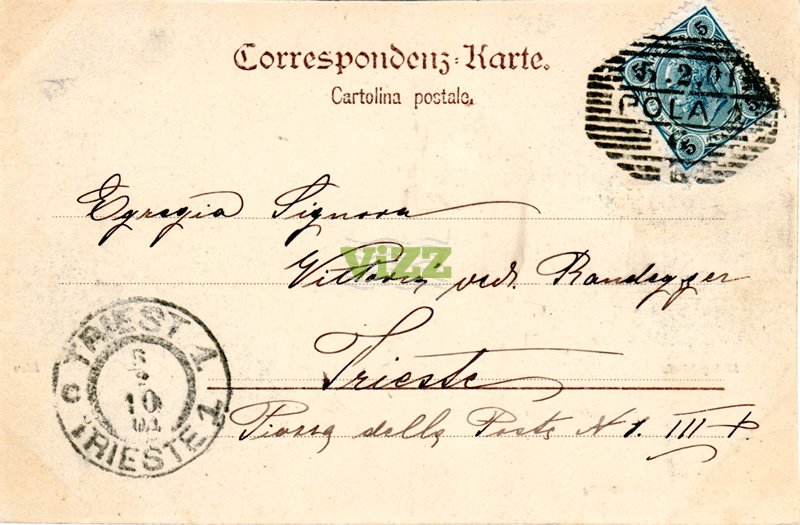 Correspondenz-Karte.
Cartolina postale.
5
5
5
5 2 01
POLA 1
Egregia Signora
ViZZ
Vittoria ved. Randegger
Trieste
Piazza della Posta N 1. III P.
TRIEST 1
5
10
TRIESTE 1
C